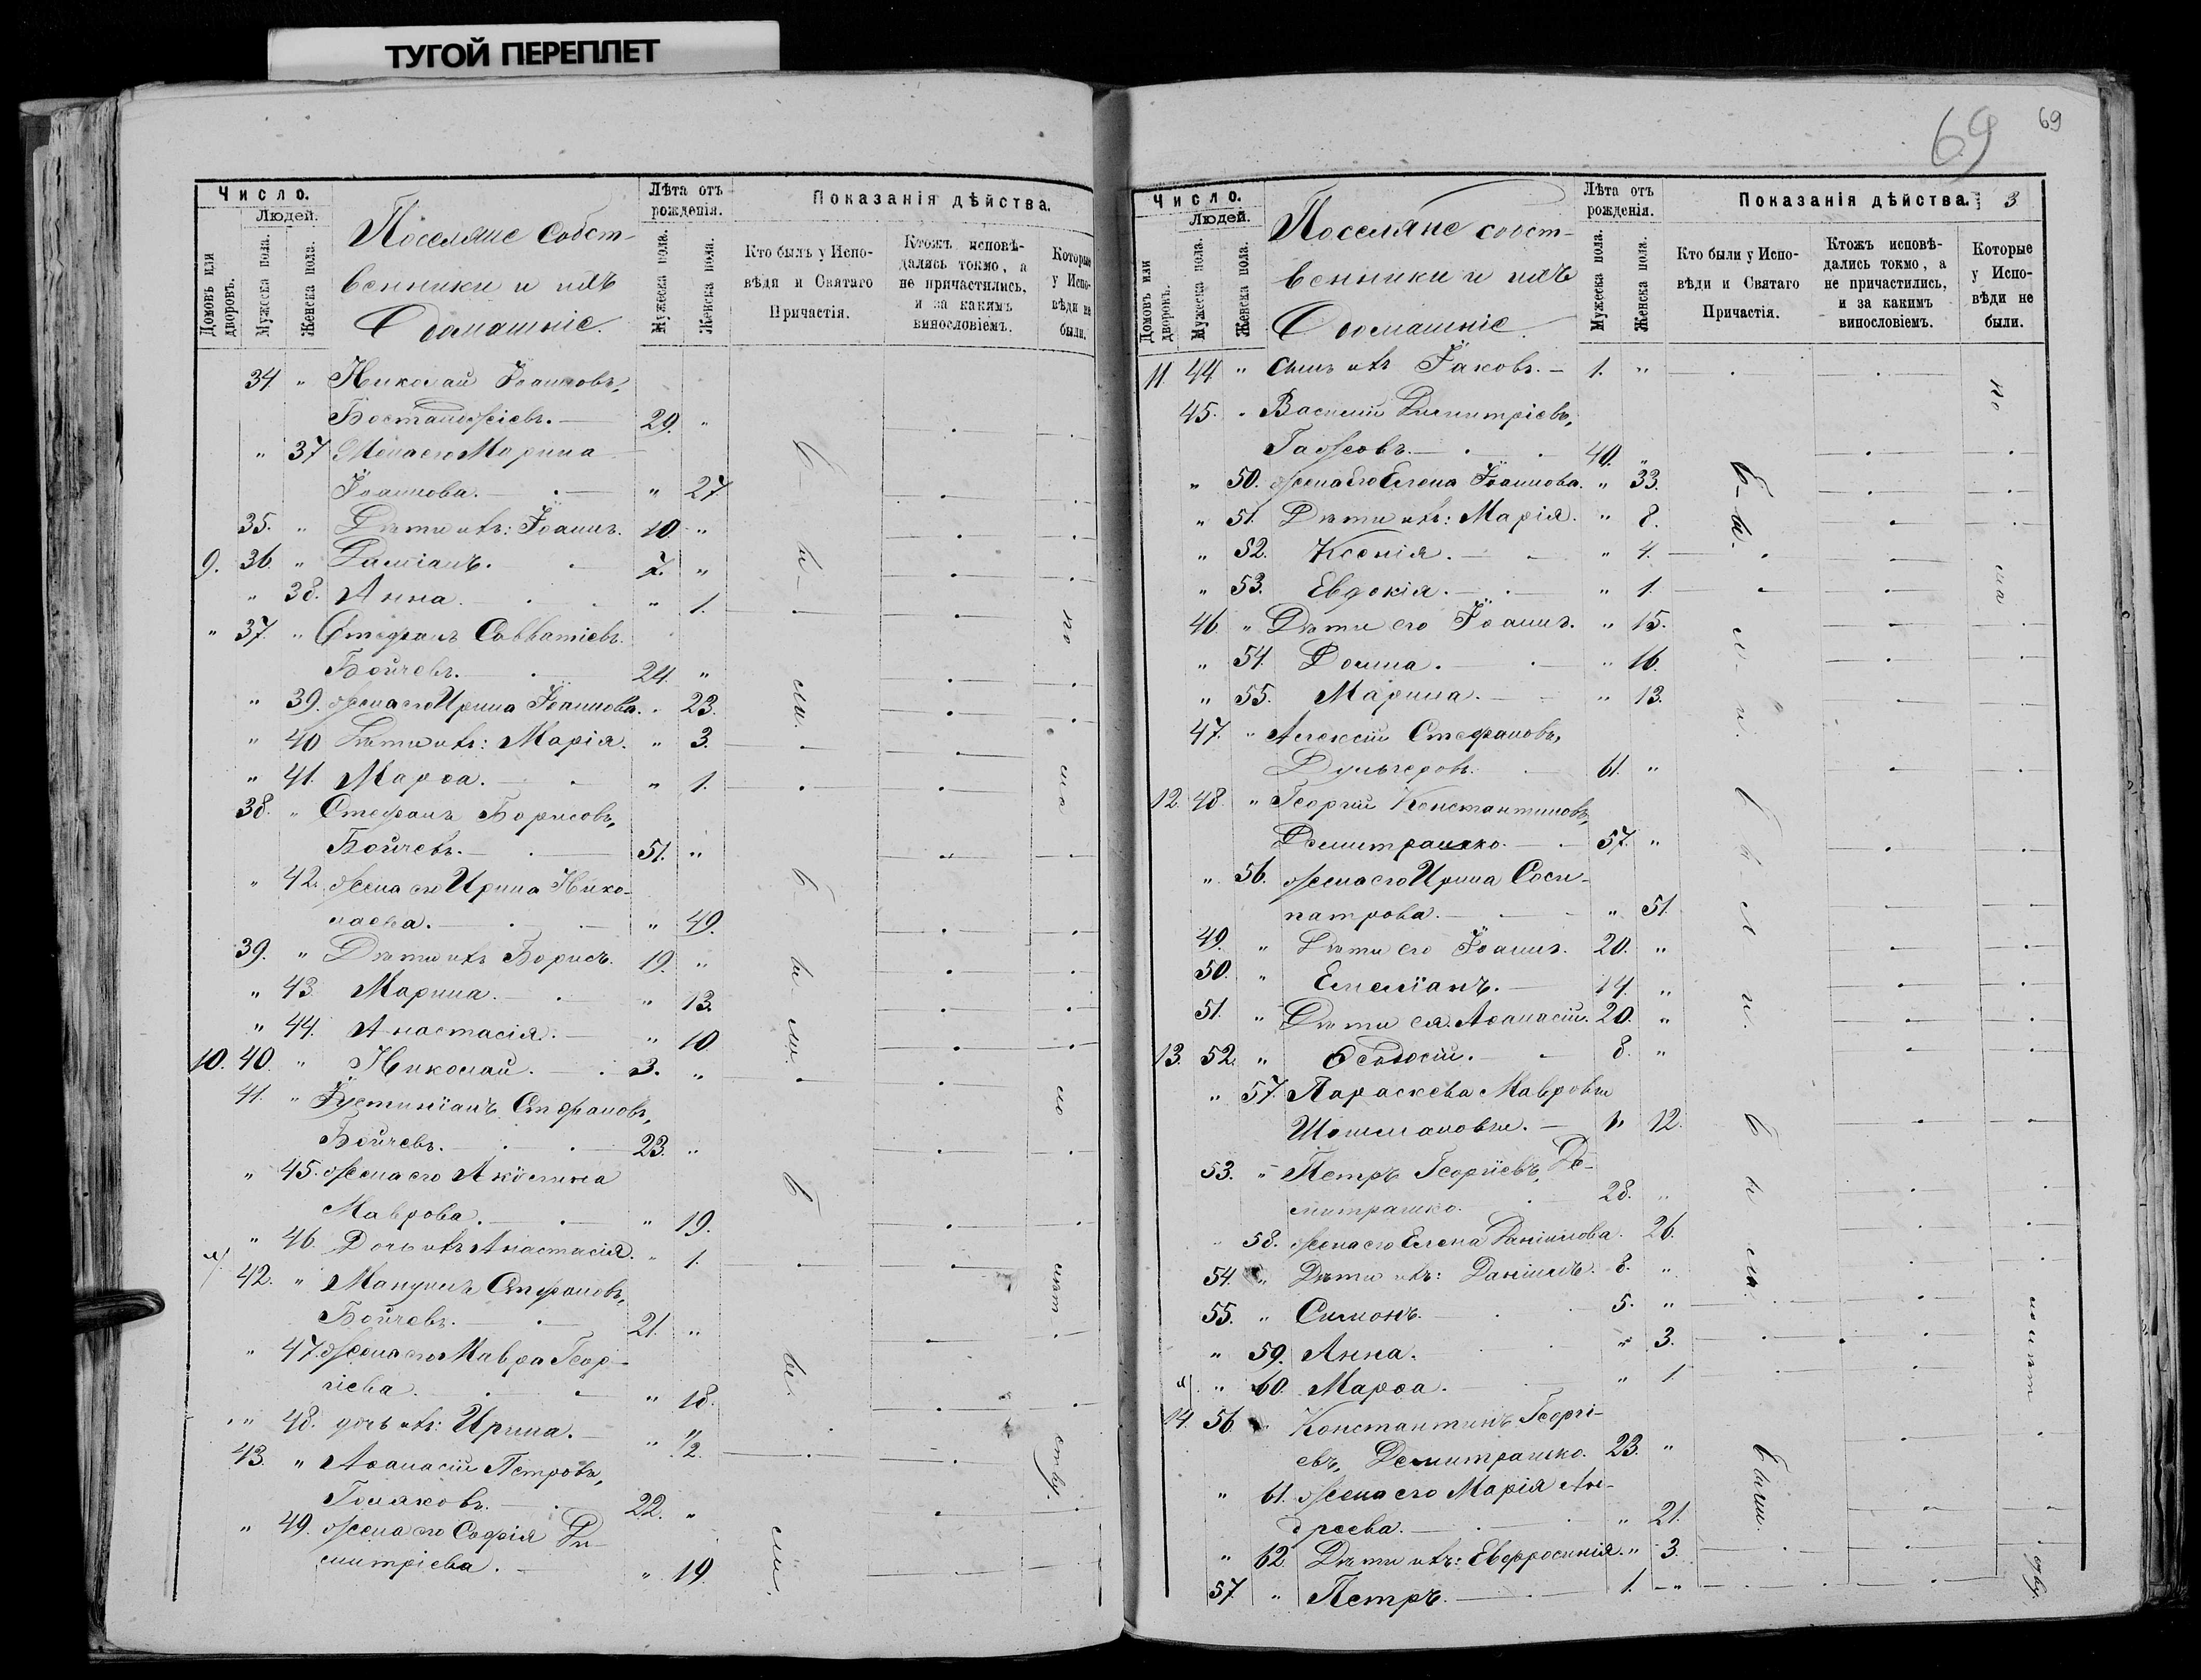 ТУГОЙ ПЕРЕПЛЕТ
Число.
Людей.
Домовъ или дворовъ.
Мужеска пола.
Женска пола.
Поселяне собст-
венники и ихъ
домашніе.
Лѣта отъ рожденія.
Мужеска пола.
Женска пола.
Показанія дѣйства.
Кто былъ у Испо-
вѣди и Святаго
Причастія.
Ктожъ исповѣ-
дались токмо, а
не причастились,
и за какимъ
винословіемъ.
Которые
у Испо-
вѣди не
были.
34 " Николай Іоанновъ,
Бостанджіевъ. — 29. "
" 37 Жена его Марина
Іоаннова. — " 27.
35. " Дѣти ихъ: Іоаннъ. 10. "
9. 36. " Даміанъ. 7. "
" 38. Анна. " 1.
" 37. " Стефанъ Савватіевъ
Бойчевъ. 24. "
" 39. жена его Ирина Іоаннова. " 23.
" 40 Дѣти ихъ: Марія. " 3.
" 41. Марѳа. " 1.
38. " Стефанъ Борисовъ,
Бойчевъ. — 51. "
" 42. жена его Ирина Нико-
лаева. — " 49.
39. " Дѣти ихъ Борисъ. 19. "
" 43 Марина. " 13.
" 44. Анастасія. " 10.
10. 40. " Николай. 3. "
41. " Іустиніанъ Стефановъ,
Бойчевъ. — 23. "
" 45. жена его Акилина
Маврова. — " 19.
" 46. Дочь ихъ Анастасія. " 1.
42. " Мануилъ Стефановъ,
Бойчевъ. — 21. "
" 47. жена его Мавра Геор-
гіева. — " 18.
" 48. дочь ихъ: Ирина. — " 1/2.
43. " Аѳанасій Петровъ,
Голяковъ. — 22. "
" 49. жена его Софія Ди-
митріева. — " 19
69
69
Число.
Людей.
Домовъ или дворовъ.
Мужеска пола.
Женска пола.
Поселяне собст-
венники и ихъ
домашніе.
Лѣта отъ рожденія.
Мужеска пола.
Женска пола.
Показанія дѣйства. 3
Кто были у Испо-
вѣди и Святаго
Причастія.
Ктожъ исповѣ-
дались токмо, а
не причастились,
и за какимъ
винословіемъ.
Которые
у Испо-
вѣди не
были.
11. 44. " Сынъ ихъ Іаковъ. — 1. "
45. " Василій Димитріевъ,
Гаджовъ. — 40. "
" 50. жена его Елена Іоаннова. " 33.
" 51. Дѣти ихъ: Марія. " 8.
" 52. Ксенія. — " 4.
" 53. Евдокія. — " 1.
46. " Дѣти его Іоаннъ. " 15.
" 54. Домна. " 16.
" 55. Марина. " 13.
47. " Алексій Стефановъ,
Дульгеровъ. 61. "
12. 48. " Георгій Константиновъ,
Демитрашко. — 57. "
" 56. жена его Ирина Соси-
патрова. — " 51.
49. " Дѣти его Іоаннъ. 20. "
50. " Емеліанъ. — 14. "
51. " Дѣти ея Аѳанасій. 20. "
13. 52. " Ѳеодосій. 8. "
" 57. Параскева Мавровы
Шошмановы. — " 12.
53. " Петръ Георгіевъ, Де-
митрашко. 28. "
58. жена его Елена Даніилова. 26.
54. " Дѣти ихъ: Даніилъ. 8. "
55. " Симонъ. 5. "
" 59. Анна. " 3.
" 60. Марѳа. " 1.
14. 56. " Константинъ Георгі-
евъ, Демитрашко. 23. "
" 61. жена его Марія Ан-
дреева. — " 21.
" 62. Дѣти ихъ: Евфросинія. " 3.
57. " Петръ. 1. "